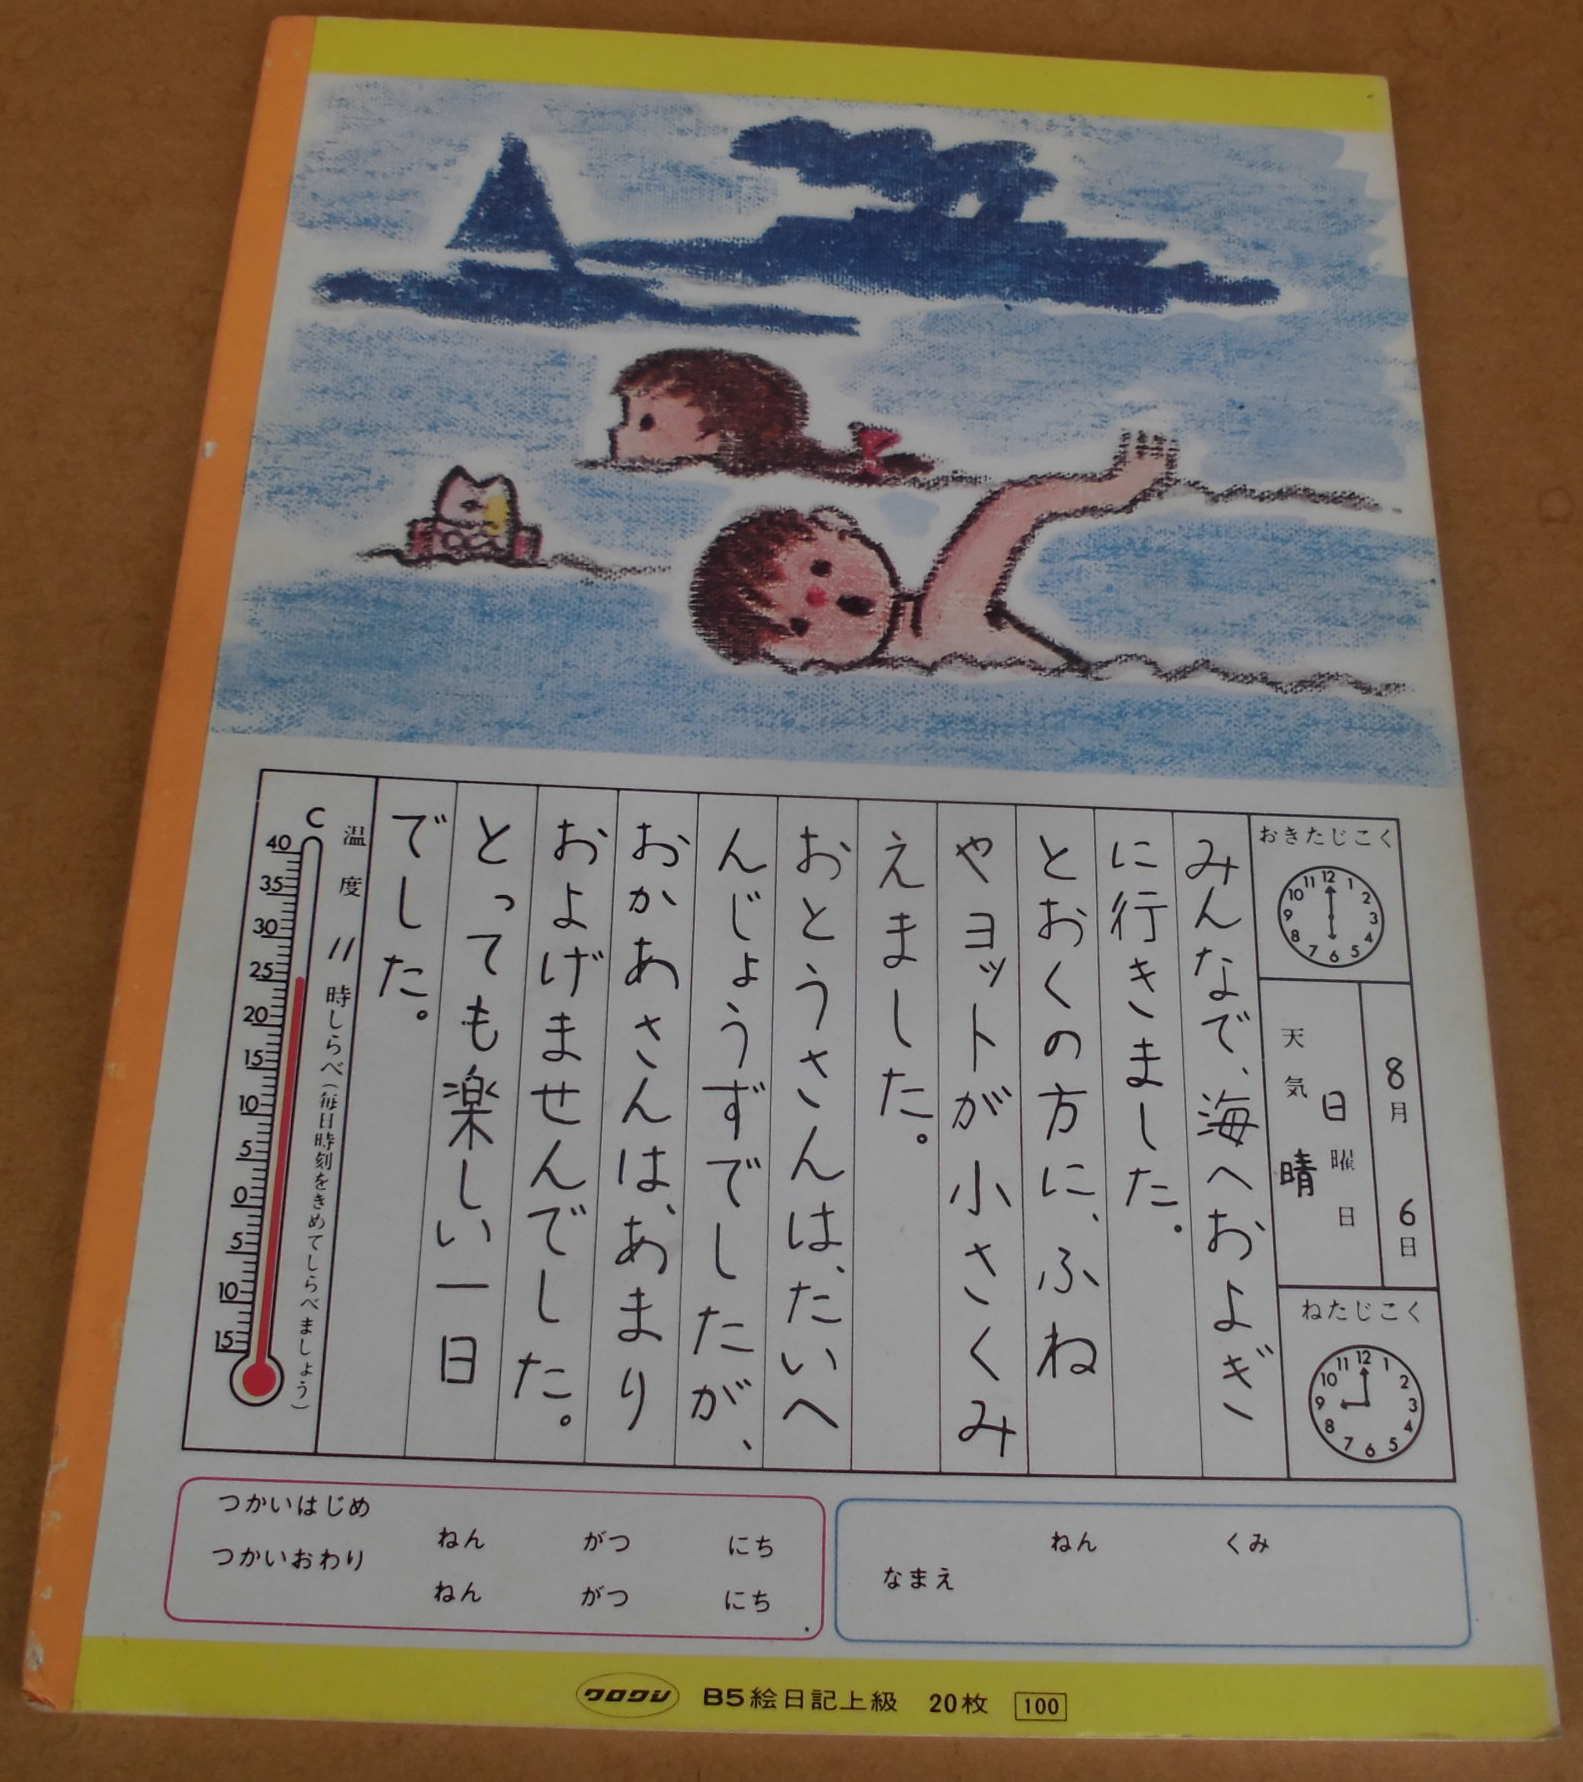 おきたじこく
12 1 2 3 4 5 6 7 8 9 10 11
8月 6日
日曜日
天気 晴
ねたじこく
12 1 2 3 4 5 6 7 8 9 10 11
みんなで、海へおよぎ
に行きました。
とおくの方に、ふね
やヨットが小さくみ
えました。
おとうさんは、たいへ
んじょうずでしたが、
おかあさんは、あまり
およげませんでした。
とっても楽しい一日
でした。
温度 11時しらべ(毎日時刻をきめてしらべましょう)
C
40
35
30
25
20
15
10
5
0
5
10
15
つかいはじめ ねん がつ にち
つかいおわり ねん がつ にち
ねん くみ
なまえ
クロクレ B5絵日記上級 20枚 100